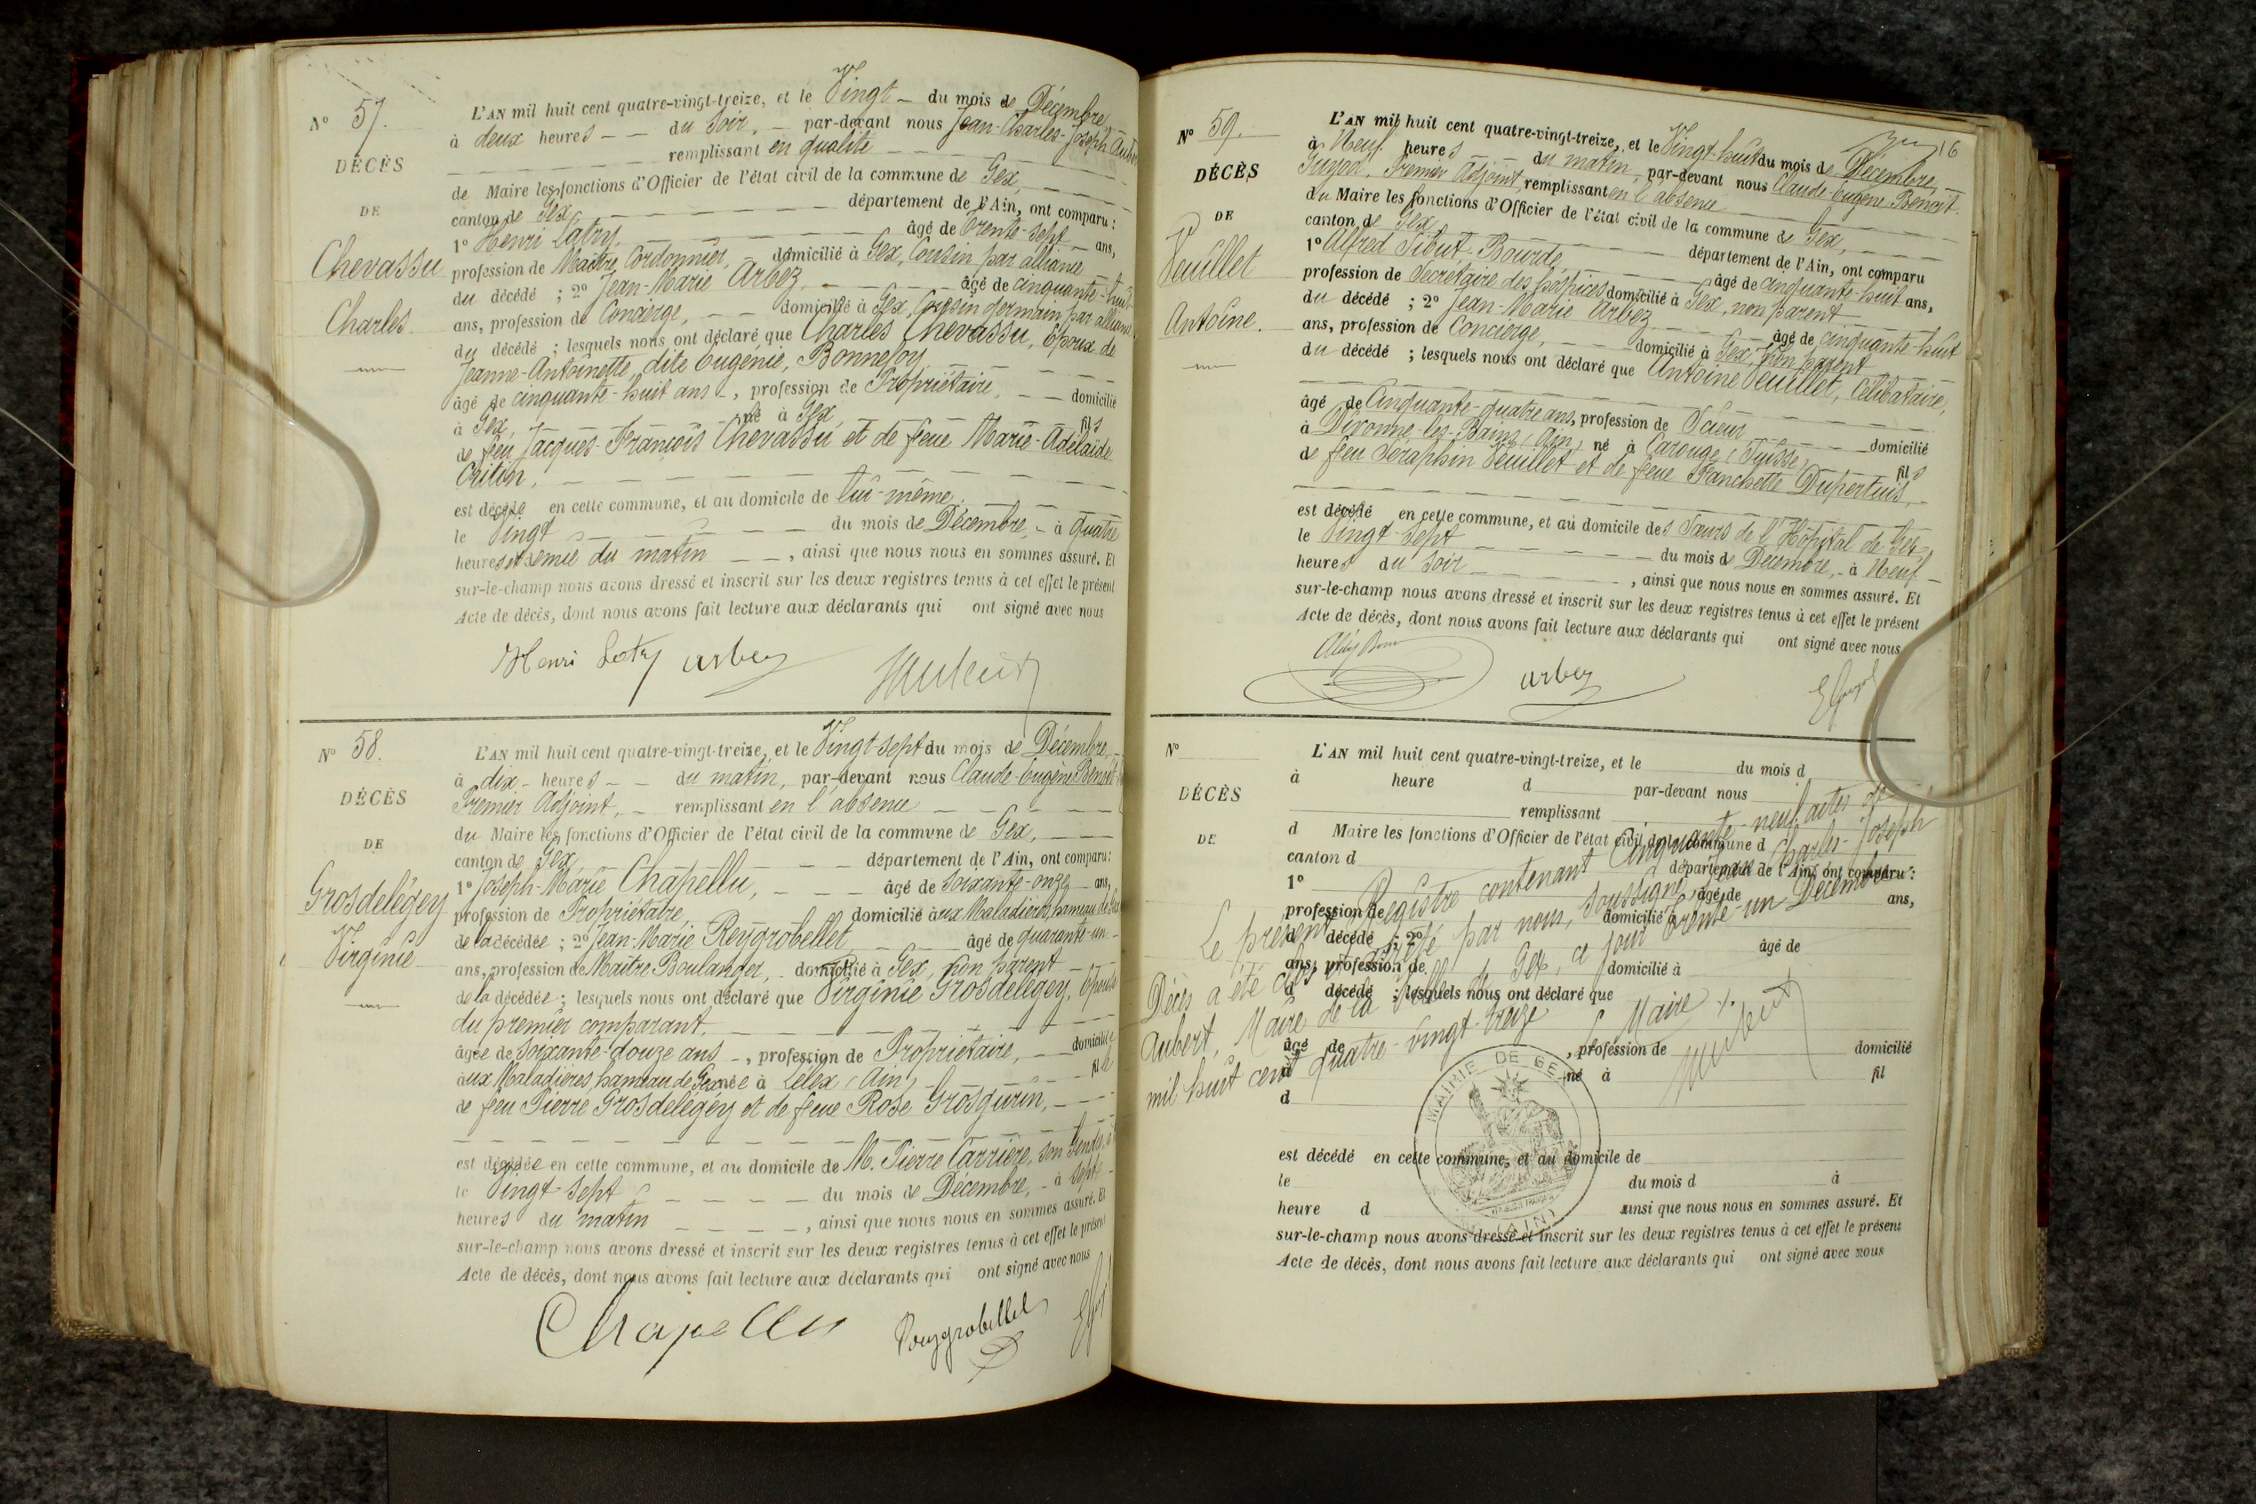 N° 57.
DÉCÈS
DE
Chevassu
Charles.
L'AN mil huit cent quatre-vingt-treize, et le Vingt du mois de Décembre,
à deux heures du soir, par-devant nous Jean-Charles-Joseph Aubert
remplissant en qualité
de Maire les fonctions d'Officier de l'état civil de la commune de Gex,
canton de Gex, département de l'Ain, ont comparu :
1° Henri Latry, âgé de trente-sept ans,
profession de Maître Cordonnier, domicilié à Gex, Cousin par alliance
du décédé ; 2° Jean-Marie Arbez, âgé de cinquante-huit
ans, profession de Concierge, domicilié à Gex, Cousin germain par alliance
du décédé ; lesquels nous ont déclaré que Charles Chevassu, Epoux de
Jeanne-Antoinette, dite Eugénie, Bonnefoy
âgé de cinquante-huit ans, profession de Propriétaire, domicilié
à Gex, né à Gex, fils
de feu Jacques-François Chevassu, et de feue Marie-Adélaïde
Criton,
est décédé en cette commune, et au domicile de lui-même,
le Vingt du mois de Décembre, à quatre
heures et demie du matin, ainsi que nous nous en sommes assuré. Et
sur-le-champ nous avons dressé et inscrit sur les deux registres tenus à cet effet le présent
Acte de décès, dont nous avons fait lecture aux déclarants qui ont signé avec nous
Henri Latry arbez
N° 58.
DÉCÈS
DE
Grosdelégey
Virginie
L'AN mil huit cent quatre-vingt-treize, et le Vingt-sept du mois de Décembre,
à dix heures du matin, par-devant nous Claude-Eugène Benoit
Premier Adjoint, remplissant en l'absence
du Maire les fonctions d'Officier de l'état civil de la commune de Gex,
canton de Gex département de l'Ain, ont comparu :
1° Joseph-Marie Chapellu, âgé de soixante-onze ans,
profession de Propriétaire, domicilié aux Maladières, hameau de Gex
de la décédée ; 2° Jean-Marie Reygrobellet, âgé de quarante-un
ans, profession de Maître Boulanger, domicilié à Gex, non parent
de la décédée ; lesquels nous ont déclaré que Virginie Grosdelégey, Epouse
du premier comparant,
âgée de soixante-douze ans, profession de Propriétaire, domiciliée
aux Maladières hameau de Gex née à Lélex (Ain) fille
de feu Pierre Grosdelégey et de feue Rose Grosgurin,
est décédée en cette commune, et au domicile de M. Pierre Carrière, son Gendre,
le Vingt-sept du mois de Décembre, à sept
heures du matin, ainsi que nous nous en sommes assuré. Et
sur-le-champ nous avons dressé et inscrit sur les deux registres tenus à cet effet le présent
Acte de décès, dont nous avons fait lecture aux déclarants qui ont signé avec nous
Chapellu Reygrobellet
16
N° 59.
DÉCÈS
DE
Veuillet
Antoine.
L'AN mil huit cent quatre-vingt-treize, et le Vingt-huit du mois de Décembre,
à Neuf heures du matin, par-devant nous Claude-Eugène Benoit
Premier Adjoint, remplissant en l'absence
du Maire les fonctions d'Officier de l'état civil de la commune de Gex,
canton de Gex, département de l'Ain, ont comparu
1° Alfred Bourde, âgé de cinquante-huit ans,
profession de Secrétaire des hospices domicilié à Gex, non parent
du décédé ; 2° Jean-Marie Arbez âgé de cinquante-huit
ans, profession de Concierge, domicilié à Gex, non parent
du décédé ; lesquels nous ont déclaré que Antoine Veuillet, Célibataire,
âgé de Cinquante-quatre ans, profession de Scieur domicilié
à Divonne-les-Bains (Ain) né à Carouge (Suisse) fils
de feu Séraphin Veuillet et de feue Franchette Dupertuis,
est décédé en cette commune, et au domicile des Sœurs de l'Hôpital de Gex,
le Vingt-sept du mois de Décembre, à Neuf
heures du soir, ainsi que nous nous en sommes assuré. Et
sur-le-champ nous avons dressé et inscrit sur les deux registres tenus à cet effet le présent
Acte de décès, dont nous avons fait lecture aux déclarants qui ont signé avec nous
arbez
N°
DÉCÈS
DE
L'AN mil huit cent quatre-vingt-treize, et le du mois d
à heure d par-devant nous
remplissant
d Maire les fonctions d'Officier de l'état civil de la commune d
canton d département de l'Ain, ont comparu :
1° âgé de ans,
profession de domicilié à
d décédé ; 2° âgé de
ans, profession de domicilié à
d décédé ; lesquels nous ont déclaré que
âgé de , profession de domicilié
à né à fil
d
est décédé en cette commune, et au domicile de
le du mois d à
heure d ainsi que nous nous en sommes assuré. Et
sur-le-champ nous avons dressé et inscrit sur les deux registres tenus à cet effet le présent
Acte de décès, dont nous avons fait lecture aux déclarants qui ont signé avec nous
Le présent Registre contenant Cinquante-neuf actes de
Décès a été clos et arrêté par nous, soussigné, Jean Charles-Joseph
Aubert, Maire de la Ville de Gex, ce jour trente-un Décembre
mil huit cent quatre-vingt-treize
Le Maire
MAIRIE DE GEX
(AIN)